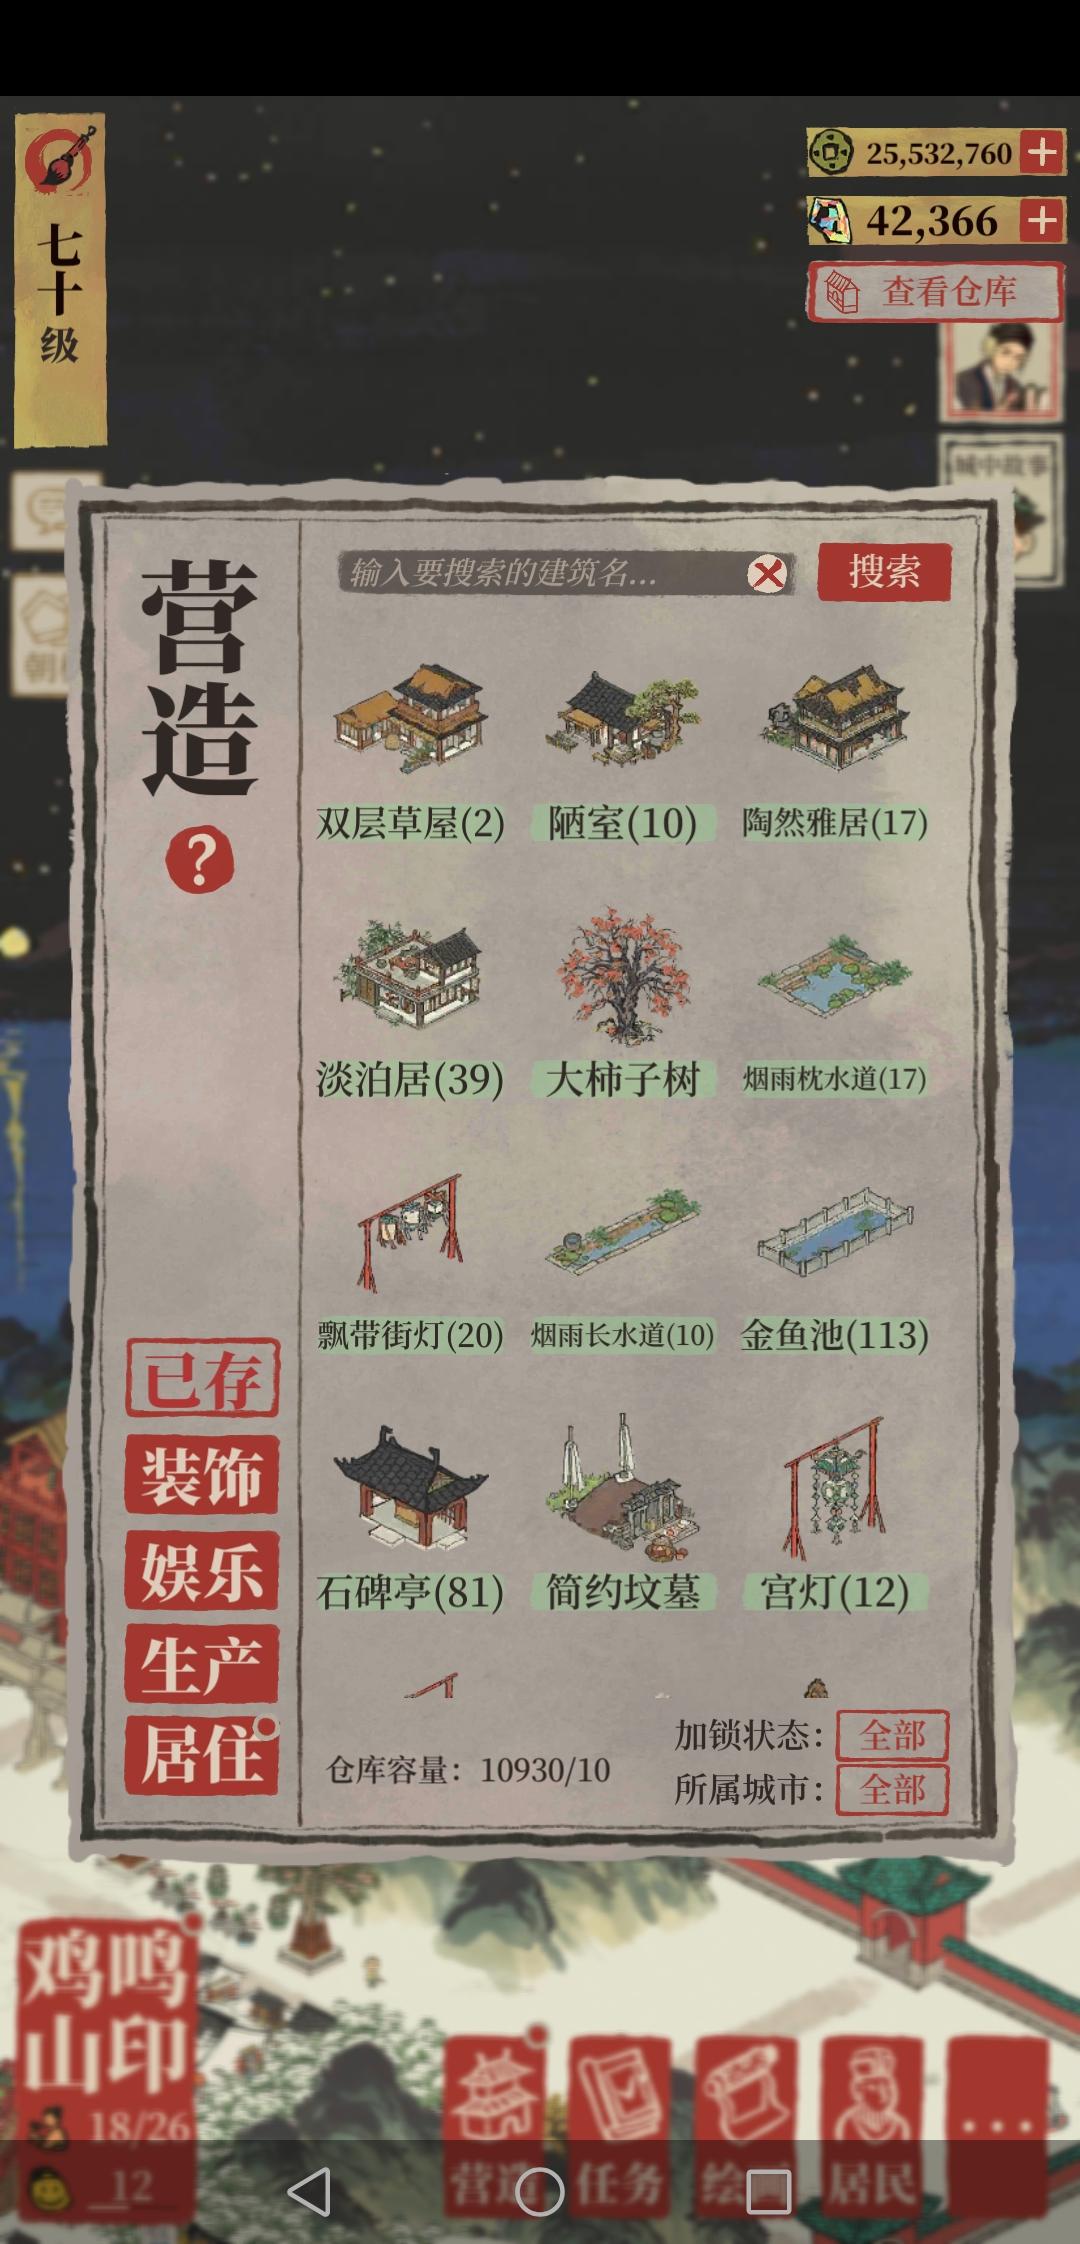 七十级
25,532,760
42,366
查看仓库
城中故事
营造
?
输入要搜索的建筑名...
搜索
双层草屋(2)
陋室(10)
陶然雅居(17)
淡泊居(39)
大柿子树
烟雨枕水道(17)
飘带街灯(20)
烟雨长水道(10)
金鱼池(113)
石碑亭(81)
简约坟墓
宫灯(12)
已存
装饰
娱乐
生产
居住
仓库容量：10930/10
加锁状态：
全部
所属城市：
全部
鸡鸣
山印
18/26
12
营造
任务
居民